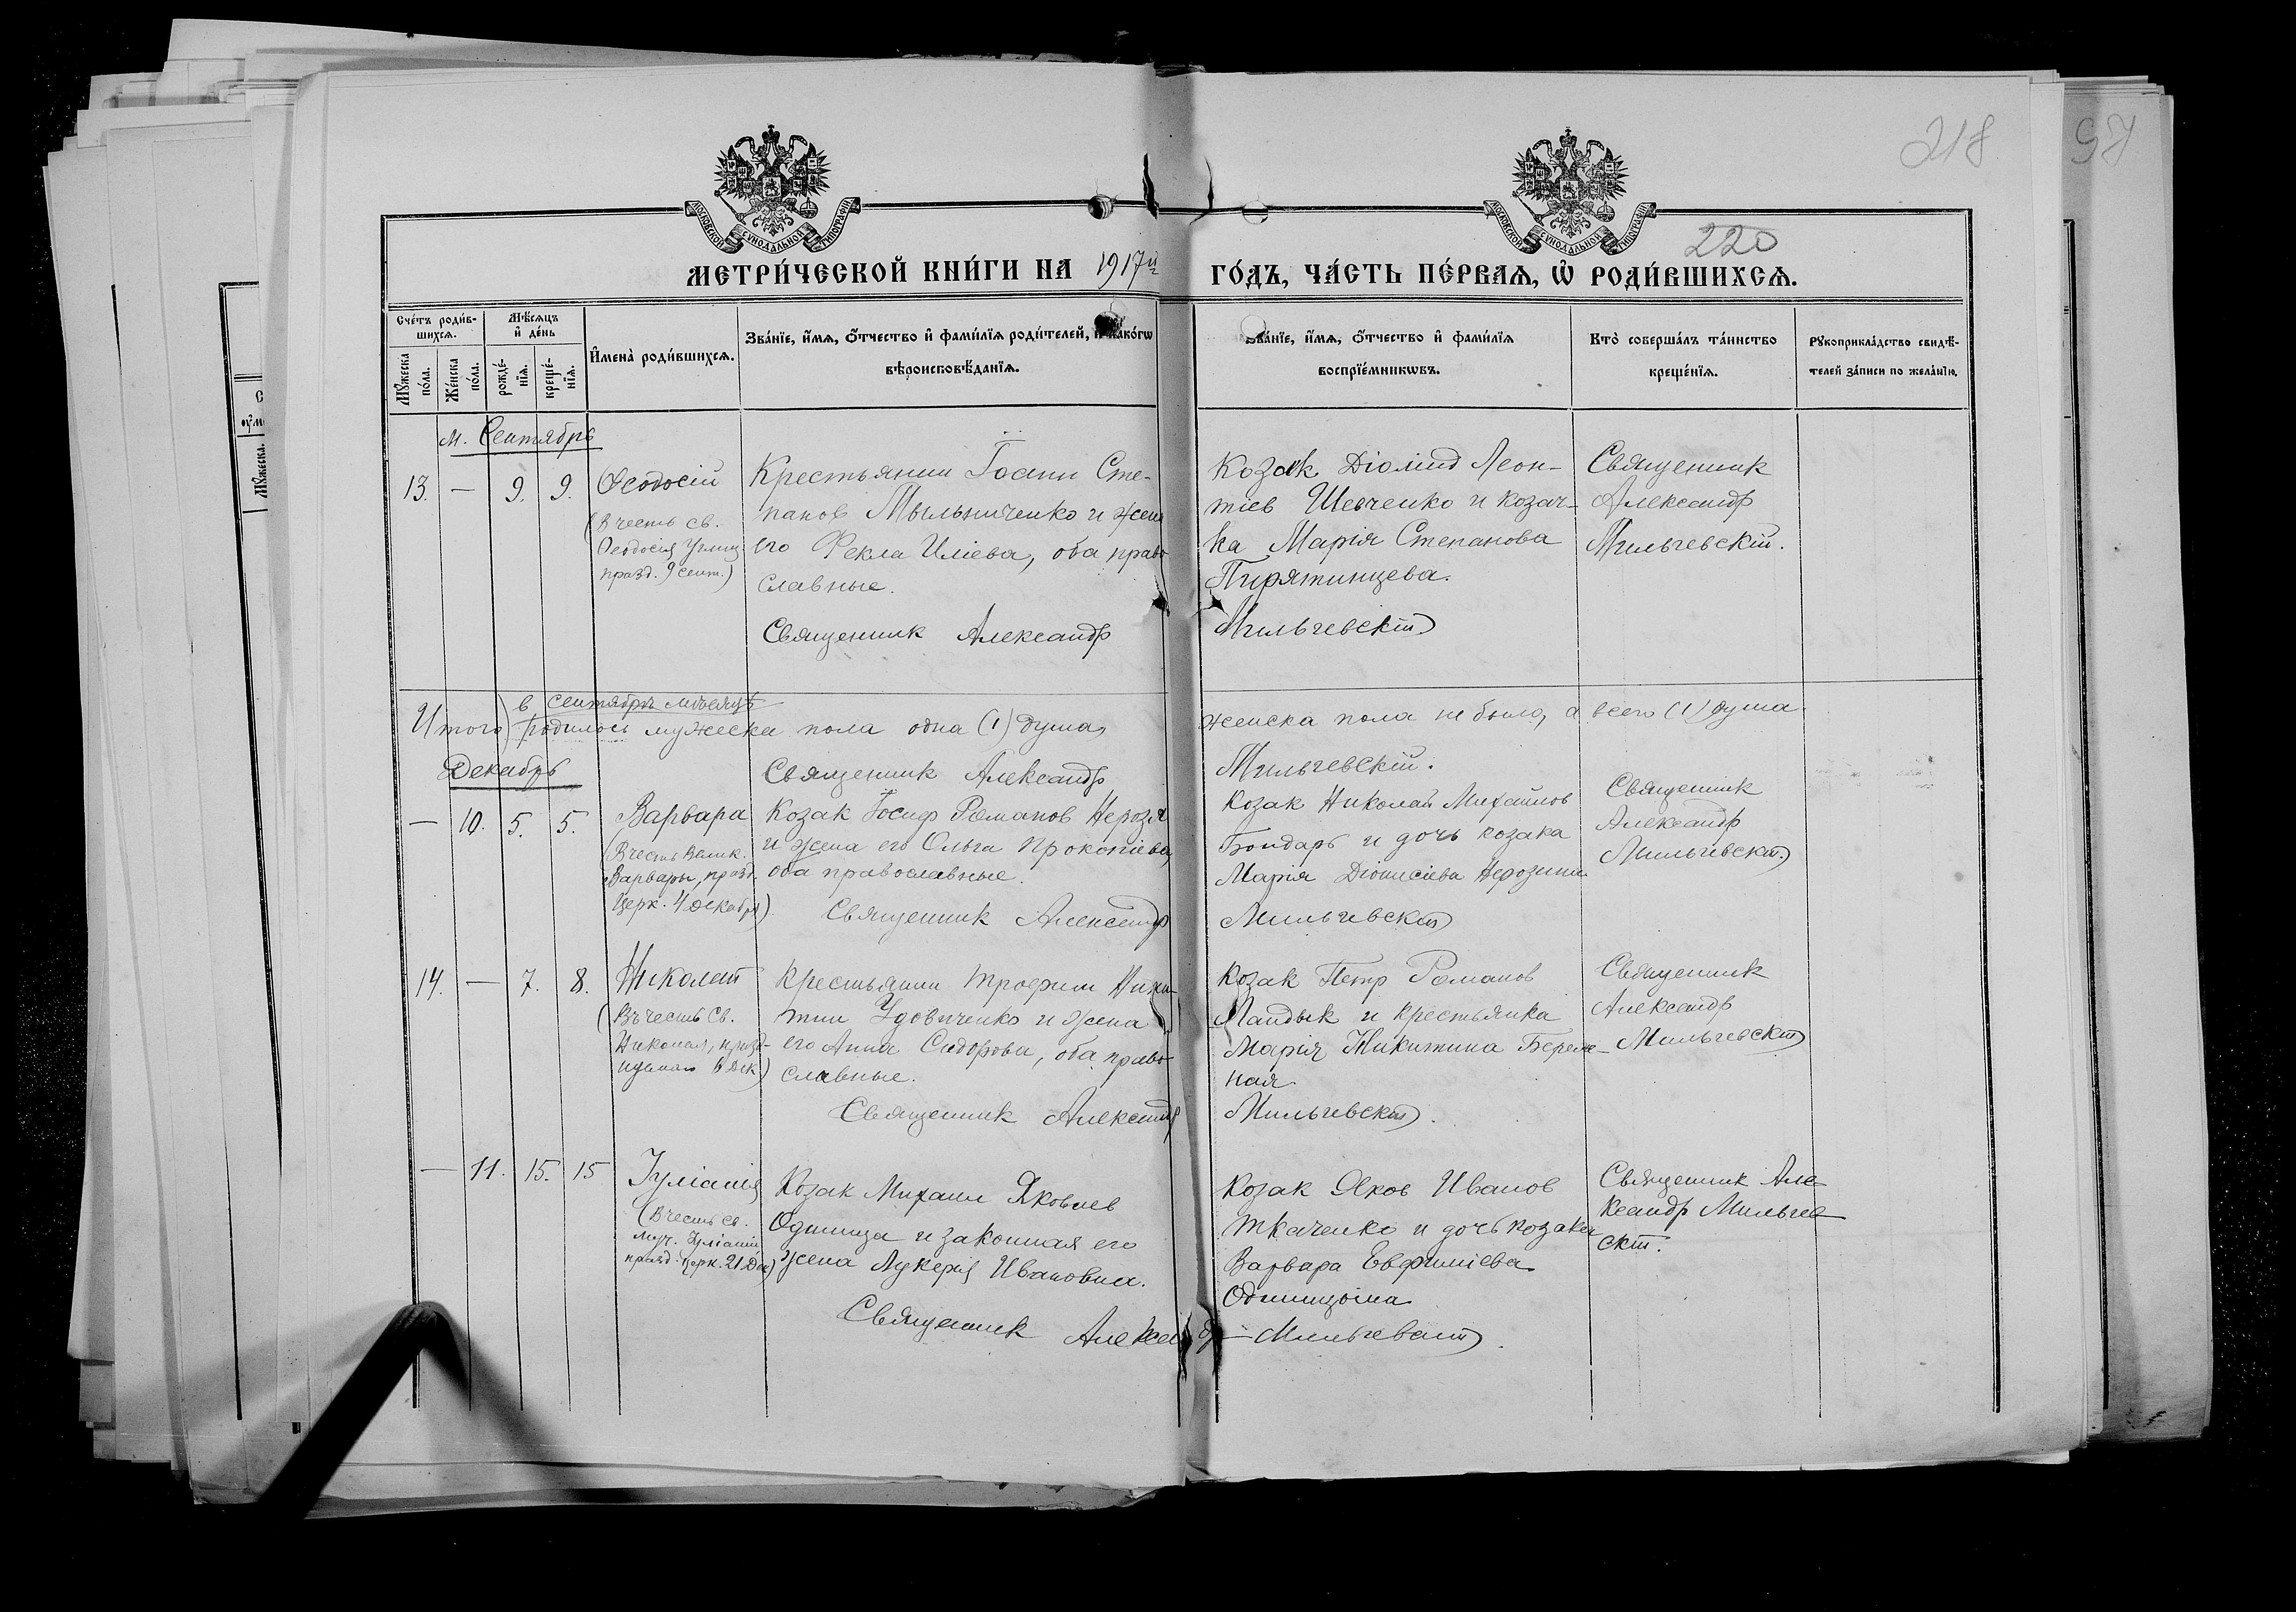 218
97
220
МОСКОВСКОЙ СѴНОДАЛЬНОЙ ТИПОГРАФІИ
МОСКОВСКОЙ СѴНОДАЛЬНОЙ ТИПОГРАФІИ
МЕТРИ́ЧЕСКОЙ КНИ́ГИ НА 1917й ГО́ДЪ, ЧА́СТЬ ПЕ́РВАѦ, Ѡ҆ РОДИ́ВШИХСѦ.
Сче́тъ роди́в-
шихсѧ.
Мꙋ́жеска по́ла.
Же́нска по́ла.
Мѣ́сѧцъ и҆ де́нь
рожде́-
нїѧ.
креще́-
нїѧ.
И҆мена̀ роди́вшихсѧ.
Зва́нїе, и҆́мѧ, ѻ҆́тчество и҆ фами́лїѧ роди́телей, и҆ како́гѡ
вѣроисповѣ́данїѧ.
Зва́нїе, и҆́мѧ, ѻ҆́тчество и҆ фами́лїѧ
воспрїе́мникѡвъ.
Кто̀ соверша́лъ та́инство
креще́нїѧ.
Рꙋкоприкла́дство свидѣ́-
телей за́писи по жела́нїю.
м. Сентябрь
13. — 9. 9. Ѳеодосій
(В честь св.
Ѳеодосія Углиц.
празд. 9 сент.)
Крестьянин Іоанн Сте-
панов Мыльниченко и жена
его Фекла Иліева, оба право
славные.
Священник Александр
Козак Леон-
тіев Шевченко и козач-
ка Марія Степанова
Пирятинцева.
Мильчевскій
Священник
Александр
Мильчевскій.
в сентябрѣ мѣсяцѣ
Итого родилось мужеска пола одна (1) душа, женска пола не было, а всего (1) душа.
Священник Александр Мильчевскій.
Декабрь
— 10. 5. 5. Варвара
(В честь Велик.
Варвары, празд.
Церк. 4 декабря)
Козак Іосиф Романов Нероза
и жена его Ольга Прокопіева,
оба православные.
Священник Александр
Козак Николай Михайлов
Бондарь и дочь козака
Марія Діонисіева Нерозина
Мильчевскій
Священник
Александр
Мильчевскій.
14. — 7. 8. Николай
(Въ честь Св.
Николая, празд-
6 Дек)
Крестьянин Трофим Ники-
тин Удовиченко и жена
его Анна Сидорова, оба право
славные.
Священник Александр
Козак Петр Романов
Ландык и крестьянка
Марія Никитина Береж-
ная.
Мильчевскій.
Священник
Александр
Мильчевскій
— 11. 15. 15 Іуліанія
(В честь св.
муч. Іуліаніи
празд. Церк. 21 Дек)
Козак Михаил Яковлев
Одиница и законная его
жена Лукерія Ивановна.
Священник Александр
Козак Яков Иванов
Ткаченко и дочь козака
Варвара Евфиміева
Одиницына
Мильчевскій.
Священник Але-
ксандр Мильчев-
скій.